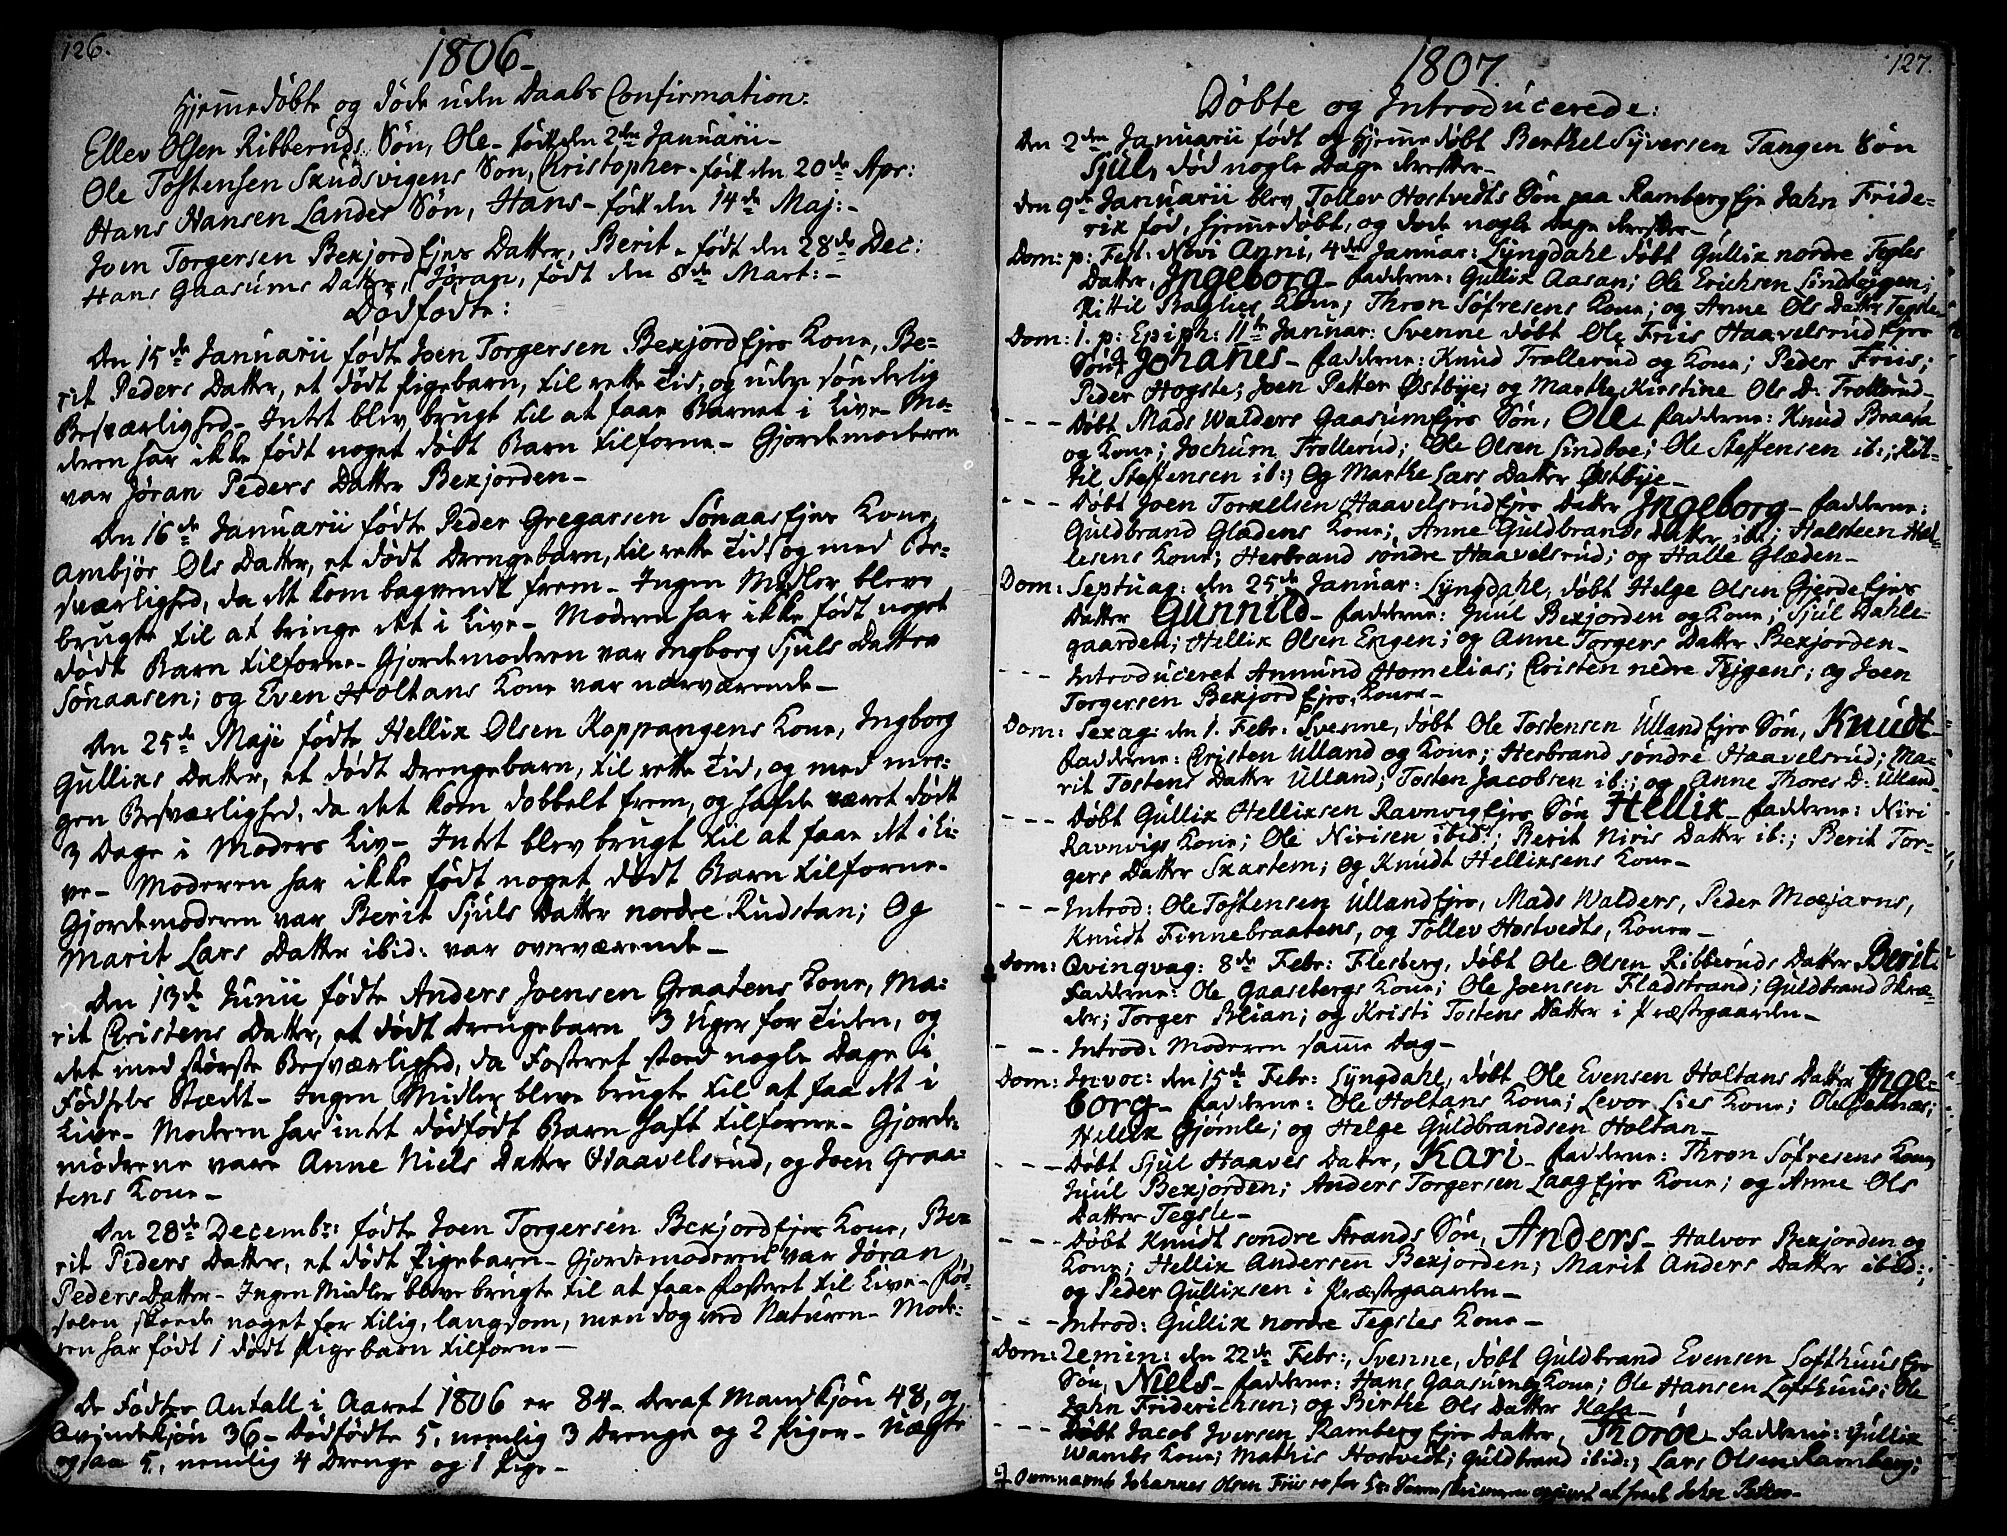 126.
1806.
Hjemmedøbte og døde uden Daabs Confirmation:
Ellev Olsen Ribberuds Søn, Ole - født den 2den Januarii -
Ole Tostensen Skudsvigens Søn, Christopher - født den 20de Apr:
Hans Hansen Landes Søn, Hans - født den 14de Maj: -
Joen Torgersen Bekjord Ejes Datter, Berit - født den 28de Dec:
Hans Gaasums Datter, Jøran, født den 8de Mart: -
Dødfødte:
Den 15de Januarii fødte Joen Torgersen Bekjord Ejes Kone, Be-
rit Peders Datter, et dødt Pigebarn, til rette Tid, og uden sønderlig
Besværlighed - Intet blev brugt til at faae Barnet i Live - Mo-
deren har ikke født noget dødt Barn tilforne - Gjordemoderen
var Jøran Peders Datter Bekjorden -
Den 16de Januarii fødte Peder Gregarsen Sønaas Ejes Kone,
Ambjør Ols Datter, et dødt Drengebarn, til rette Tid, og med Be-
sværlighed, da det kom bagvendt frem - Ingen Midler bleve
brugte til at bringe det i Live - Moderen har ikke født noget
dødt Barn tilforne - Gjordemoderen var Ingborg Sjuls Datter
Sønaasen; og Even Holtans Kone var nærværende -
Den 25de Maji fødte Hellik Olsen Koppangens Kone, Ingborg
Gulliks Datter, et dødt Drengebarn, til rette Tid, og med me-
gen Besværlighed, da det kom dobbelt frem, og hafde været dødt
3 Dage i Moders Liv - Intet blev brugt til at faae det i Li-
ve - Moderen har ikke født noget dødt Barn tilforne -
Gjordemoderen var Berit Sjuls Datter nordre Rudstan; Og
Marit Lars Datter ibid: var overværende -
Den 13de Junii fødte Anders Joensen Graatens Kone, Ma-
rit Cristens Datter, et dødt Drengebarn 3 Uger for Tiden, og
det med største Besværlighed, da Fosteret stod nogle Dage i
Fødsels Stædet - Ingen Midler bleve brugte til at faa det i
Live - Moderen har intet dødfødt Barn haft tilforne - Gjorde-
mødrene vare Anne Niels Datter Haavelsrud, og Joen Graa-
tens Kone -
Den 28de Decembr: fødte Joen Torgersen Bekjord Ejes Kone, Be-
rit Peders Datter, et dødt Pigebarn - Gjordemoderen var Jøran
Peders Datter - Ingen Midler bleve brugte til at faae Fosteret til Live - Fød-
selen skeede noget for tilig, langsom, men dog ved Naturen - Mode-
ren har født 1 dødt Pigebarn tilforne -
De Fødtes Antall i Aaret 1806 er 84 - Deraf Mandkjøn 48, og
Qvindekjøn 36 - Dødfødte 5, nemlig 3 Drenge og 2 Piger -
ogsaa 5, nemlig 4 Drenge og 1 Pige -
127.
1807
Døbte og Introducerede:
Den 2den Januarii født og hjemmedøbt Berthel Syversen Tangen Søn
Sjul, død nogle Dage derefter -
Den 9de Januarii blev Tollev Hostvedts Søn paa Ramberg Eje Jahn Fride-
rik fød, hjemmedøbt, og døde nogle Dage derefter -
Dom: p: Fest: Novi Anni, 4de Januar: Lyngdahl døbt Gullik nordre Tegles
Datter, Ingeborg - Fadderne: Gullik Aasan; Ole Erichsen Lindtejgen;
Kittil Baglies Kone; Thron Sofresens Kone; og Anne Ols Datter Tegsle
Dom: 1. p: Epiph: 11te Januar: Svenne døbt Ole Friis Haavelsrud Ejes
Søn Johanes - Fadderne: Knud Trollerud og Kone; Peder Friis;
Peder Hogste; Joen Petter Østbye; og Marthe Kirstine Ols D: Trollerud -
- - - Døbt Mads Walders Gaasum Ejes Søn, Ole - Fadderne: Knud Braata
og Kone; Jochum Trollerud; Ole Olsen Lindboe; Ole Steffensen ib:; Kit-
til Steffensen ib:; Og Marthe Lars Datter Østbye -
- - - Døbt Joen Torkelsen Haavelsrud Ejes Datter Ingeborg - Fadderne:
Guldbrand Glædens Kone; Anne Guldbrands Datter ibt; Halsteen Hel-
lesens Kone; Herbrand søndre Haavelsrud; og Halle Glæden -
Dom: Septuag: den 25de Januar: Lyngdahl, døbt Helge Olsen Gjerde Ejes
Datter Gunnild - Fadderne: Juul Bekjorden og Kone; Sjul Dahle-
gaarden; Hellik Olsen Engen; og Anne Torgers Datter Bekjorden -
- - - Introduceret Anmund Homelias; Cristen nedre Tejgens; og Joen
Torgersen Bekjord Ejes, Koner -
Dom: Sexag: den 1. Febr: Svenne, døbt Ole Tostensen Ulland Ejes Søn, Knudt -
Fadderne: Cristen Ulland og Kone; Herbrand søndre Haavelsrud; Ma-
rit Tostens Datter Ulland; Tosten Jacobsen ib:; og Anne Thores D: Ulland
- - - Døbt Gullik Helliksen Ravnvig Ejes Søn Hellik - Fadderne: Niri
Ravnvigs Kone; Ole Nirisen ibid:; Berit Niris Datter ib:; Berit Tor-
gers Datter Skartem; og Knudt Helliksens Kone -
- - - Introd: Ole Tostensen Ulland Ejes, Mads Walders, Peder Moejarns,
Knudt Finnebraatens, og Tollev Hostvedts, Koner -
Dom: Qvinqvag: 8de Febr: Flesberg, døbt Ole Olsen Ribberuds Datter Berit -
Fadderne: Ole Gaasebergs Kone; Ole Joensen Fladstrand; Guldbrand Skræ-
der; Torger Blian; og Kristi Tostens Datter i Præstegaarden -
- - - Introd: Moderen samme Dag -
Dom: Invoc: den 15de Febr: Lyngdahl, døbt Ole Evensen Holtans Datter Inge-
borg - Fadderne: Ole Holtans Kone; Levor Lies Kone;
Hellik Gjomle; og Helge Guldbrandsen Holtan -
- - - Døbt Sjul Haaves Datter, Kari - Fadderne: Thron Sofresens Kone
Juul Bekjorden; Anders Torgersen Laag Ejes Kone; og Anne Ols
Datter Tegsle -
- - - Døbt Knudt søndre Strands Søn, Anders - Halvor Bekjorden og
Kone; Hellik Andersen Bekjorden; Marit Anders Datter ibid:;
og Peder Gulliksen i Præstegaarden -
- - - Introd: Gullik nordre Tegsles Kone -
Dom: Remin: den 22de Febr:, Svenne, døbt Guldbrand Evensen Lofthuus Ejes
Søn, Niels - Fadderne: Hans Gaasums Kone; Ole Hansen Lofthuus; Ole
Jahn Friderichsen; og Birthe Ols Datter Kasa -
- - - Døbt Jacob Iversen Ramberg Ejes Datter, Thoroe - Fadderne: Gullik
Wambs Kone; Mathis Hostvedt; Guldbrand ibid:; Lars Olsen Ramberg;
Johannes Olsen Friis